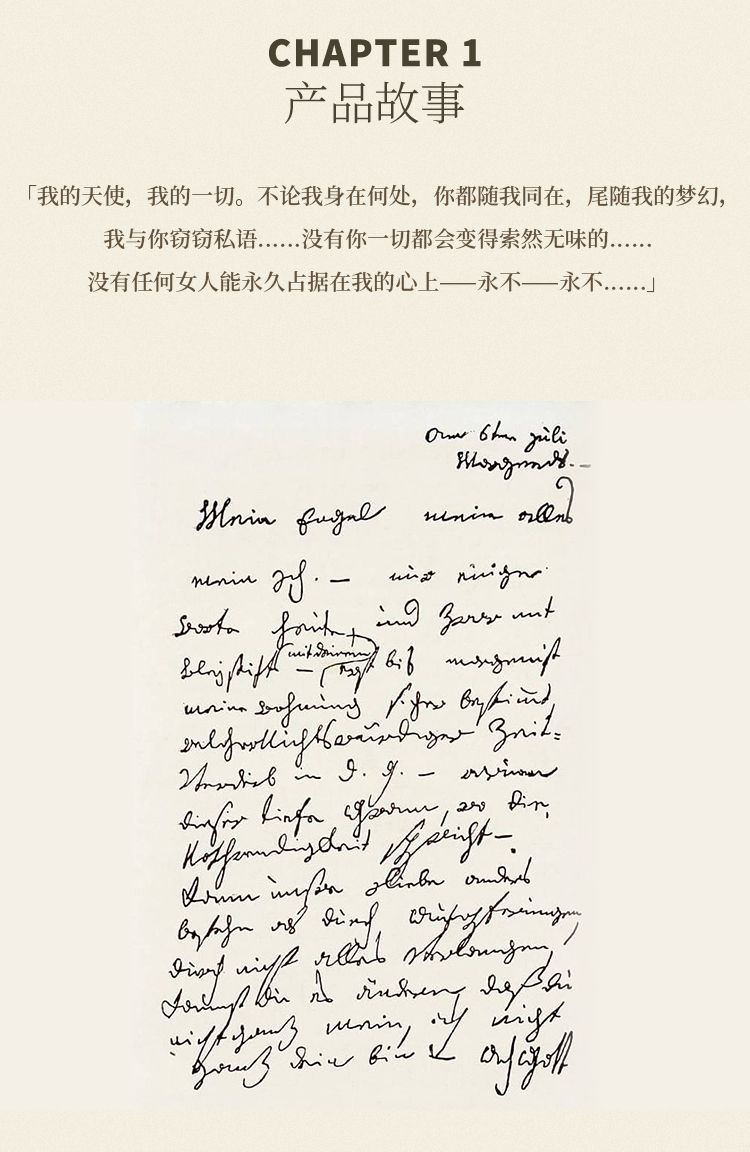 CHAPTER 1
产品故事
「我的天使，我的一切。不论我身在何处，你都随我同在，尾随我的梦幻，
我与你窃窃私语……没有你一切都会变得索然无味的……
没有任何女人能永久占据在我的心上——永不——永不……」
am 6ten juli
Morgends. –
Mein Engel mein alles
mein Ich. – nur einige
Worte heute, und zwar mit
Bleystift – mit deinem bis morgen ist
meine Wohnung sicher bestimt,
welcher Zeit=
Verderb in D. g. – warum
dieser tiefe Gram, wo die
Nothwendigkeit spricht –
Kann unsre Liebe anders
bestehn als durch Aufopferungen,
durch nicht alles verlangen,
kannst du es ändern, daß du
nicht ganz mein, ich nicht
ganz dein bin – Ach Gott